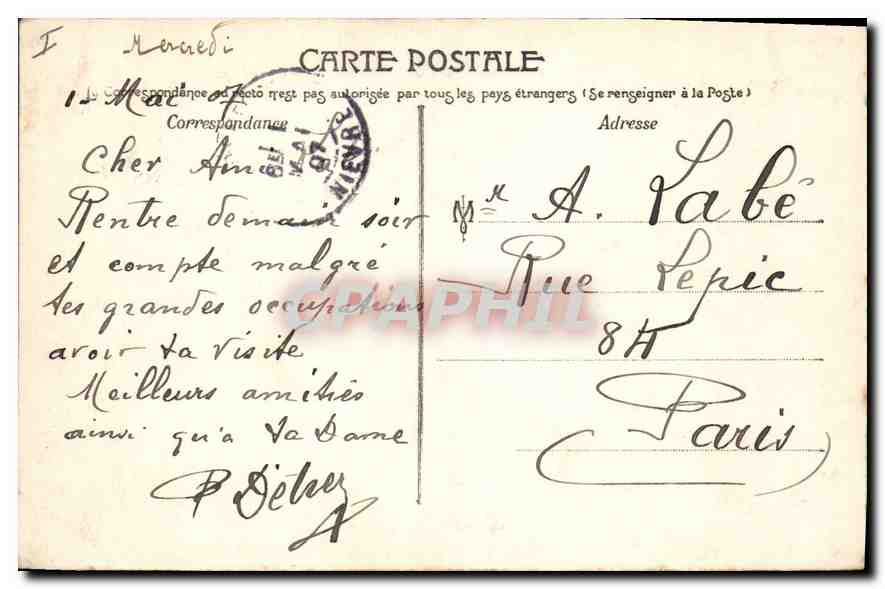 I
Mercredi
CARTE POSTALE
La Correspondance au recto n'est pas autorisée par tous les pays étrangers (Se renseigner à la Poste)
1 Mai 07
Correspondance
Adresse
Cher Ami
Rentre demain soir
et compte malgré
tes grandes occupations
avoir ta visite
Meilleurs amitiés
ainsi qu'à ta Dame
1
MAI
07
NIEVRE
Mr A. Labé
Rue Lepic
84
Paris
CPAPHIL